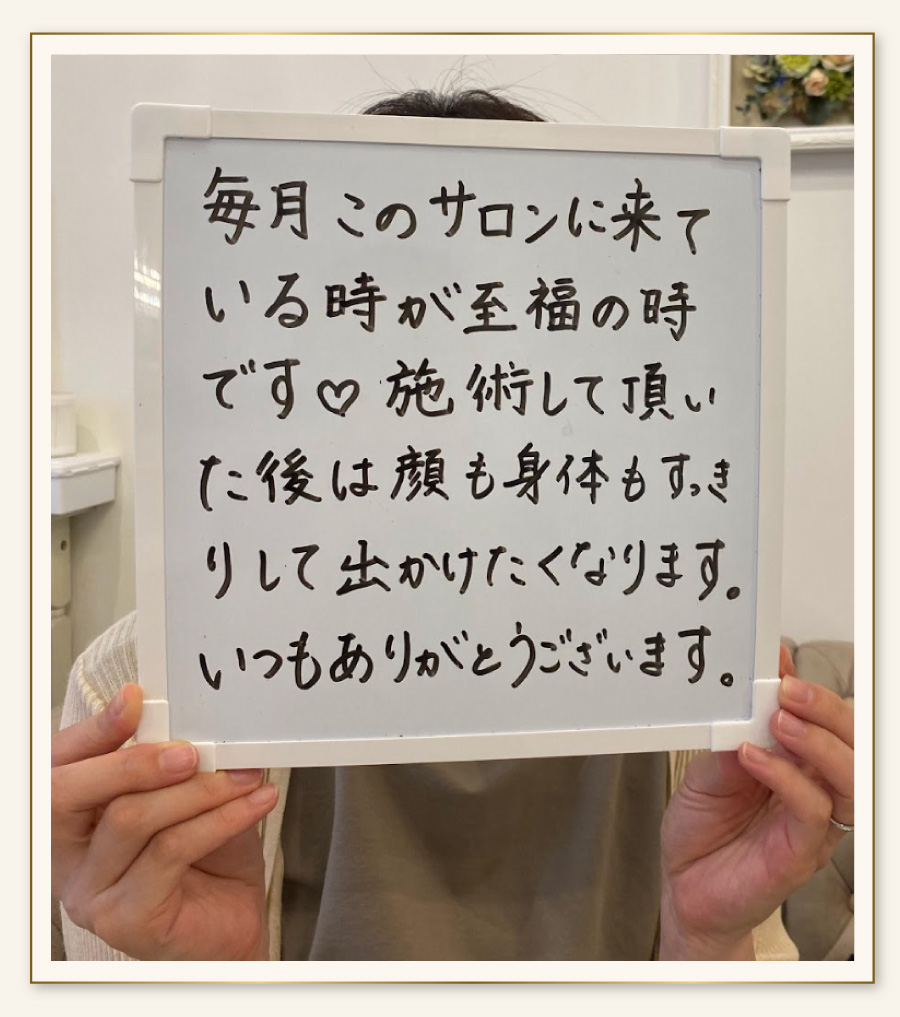 毎月このサロンに来て
いる時が至福の時
です♡施術して頂い
た後は顔も身体もすっき
りして出かけたくなります。
いつもありがとうございます。